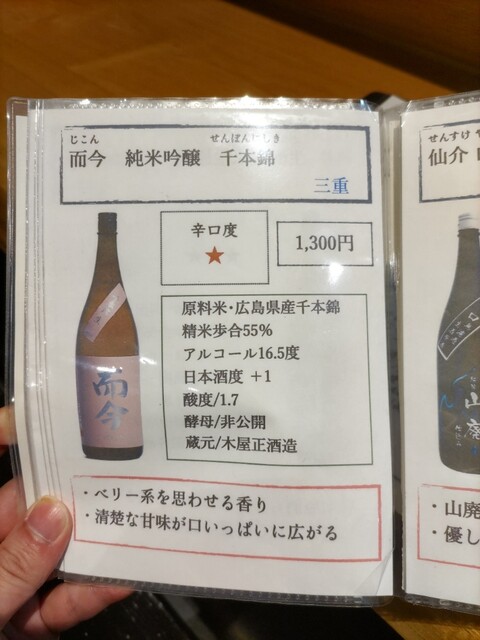 じこん せんぼんにしき
而今 純米吟醸 千本錦
三重
辛口度
★
1,300円
原料米・広島県産千本錦
精米歩合55%
アルコール16.5度
日本酒度 +1
酸度/1.7
酵母/非公開
蔵元/木屋正酒造
而今
・ベリー系を思わせる香り
・清楚な甘味が口いっぱいに広がる
せんすけ
仙介
山廃
・山廃
・優し